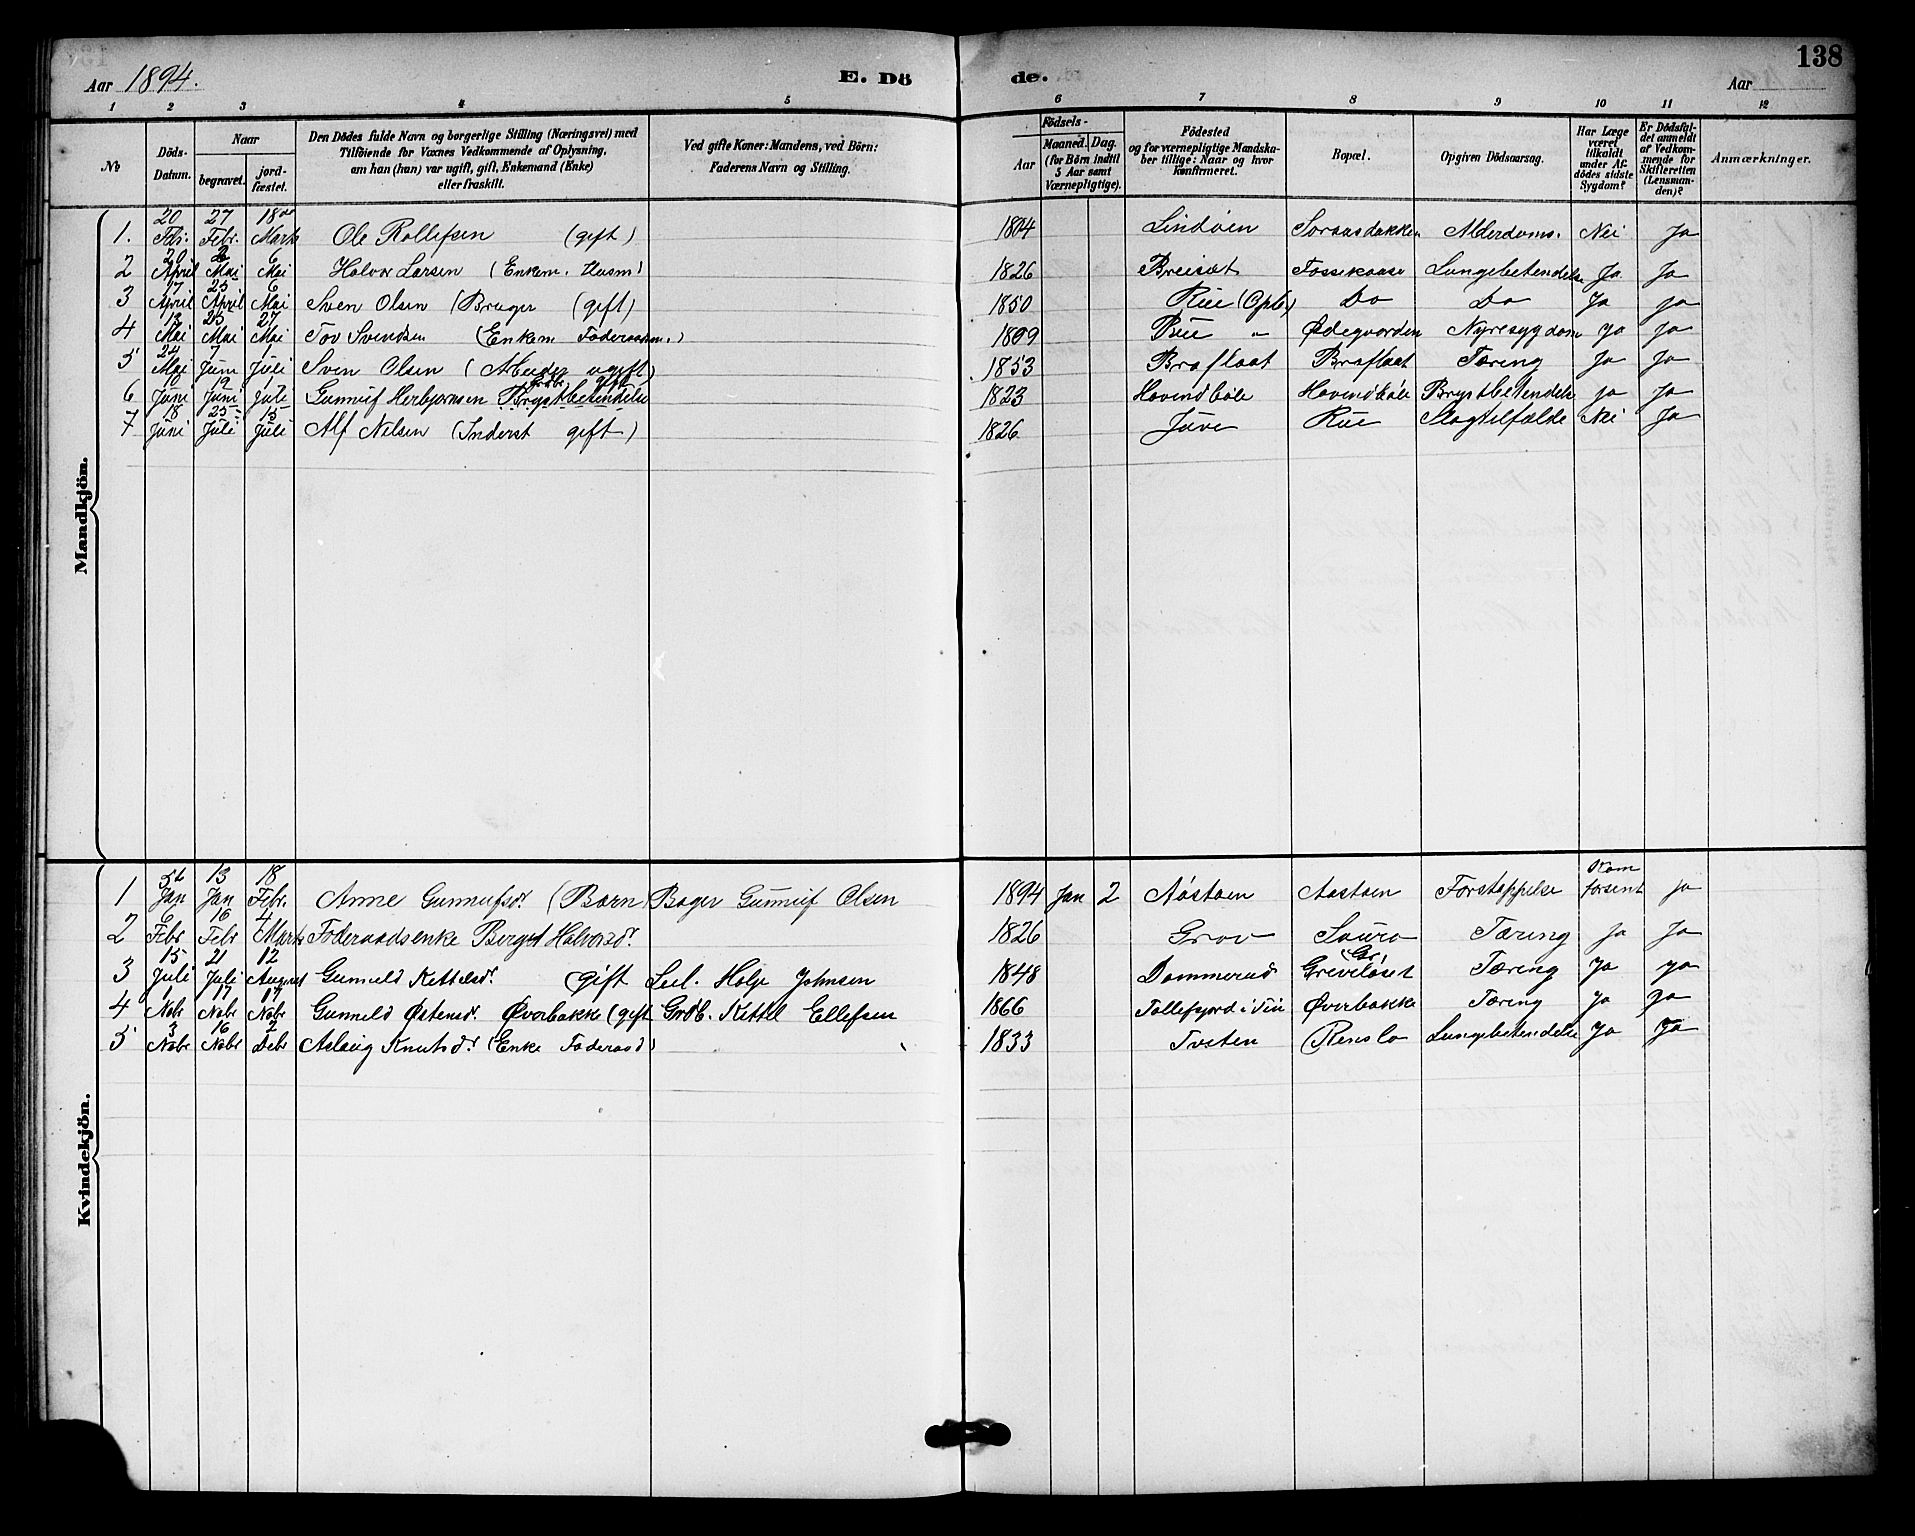 138
Aar 1894.
E. Dö
de.
Aar
1 2 3 4 5 6 7 8 9 10 11 12
No
Döds-Datum.
Naar
begravet.
jord-fæstet.
Den Dödes fulde Navn og borgerlige Stilling (Næringsvei) med
Tilföiende for Voxnes Vedkommende af Oplysning,
om han (hun) var ugift, gift, Enkemand (Enke)
eller fraskilt.
Ved gifte Koner: Mandens, ved Börn:
Faderens Navn og Stilling.
Födsels-
Aar
Maaned. Dag.
(for Börn indtil
5 Aar samt
Værnepligtige).
Födested
og for værnepligtige Mandska-
ber tillige: Naar og hvor
konfirmeret.
Bopæl.
Opgiven Dödsaarsag.
Har Læge
været
tilkaldt
under Af-
dödes sidste
Sygdom?
Er Dödsfal-
det anmeldt
af Vedkom-
mende for
Skifteretten
(Lensman-
den)?
Anmærkninger.
Mandkjön.
1. 20 Febr. 27 Febr. 18de Marts Ole Rollefsen (gift) 1804 Lindöen Alderdoms. Nei Ja
2 20 April Mai 6 Mai Halvor Larsen (Enkem. Husm) 1826 Breisæt Lungebetendelse Ja Ja
3 17 April 25 April 6 Mai Sven Olsen (Bruger (gift) 1850 Rue (Opb) Do Do Ja ja
4 13 Mai 25 Mai 27 Mai Tov Svendsen (Enkem Föderaadsm.) 1809 Rue " Ödegaarden Nyresygdom ja ja
5 24 Mai 7 Juni 1 Juli Sven Olsen ugift) 1853 Braflaat Braflaat Tæring ja ja
6 10 Juni 19 Juni 1 juli Gunnuf Herbjørnsen Brystbetendelse gift 1823 Hovindböle Hovindböle Brystbetendelse ja ja
7 18 Juni 25 Juli 15 Juli Alf Nelsen (Inderst gift) 1826 Juve Rue Slagtilfælde Nei Ja
Kvindekjön.
1 5te Jan 13 Jan 18 Febr. Anne Gunnufsdr (Barn) Gunnuf Olsen 1894 Jan 2 Aastoen Aastoen Forstoppelse Kom forsent ja
2 6 Febr 16 Febr 4 Marts Föderaadsenke Berget Halvorsdr 1826 Grov Tæring ja Ja
3 15 Juli 21 Juli 12 August Gunnild Kettelsdr gift Sel. Holje Johnsen 1848 Dommerud Greveløset Tæring ja ja
4 1 Nobr 17 Nobr 17 Nobr Gunnild Østensdr Øverbakke (gift Grdb. Kittil Ellefsen 1866 Tollefsjord i Tin Øverbakke Tæring ja ja
5 3 Nobr 16 Nobr 2 Debr Aslaug Knutsdr (Enke Föderaad) 1833 Tveten Lungebetendelse Ja Ja